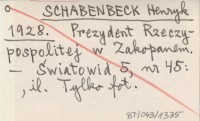 SCHABENBECK Henryk
1928. Prezydent Rzeczy-
pospolitej w Zakopanem.
– Światowid 5, nr 45:
, il. Tylko fot.
87/043/1335